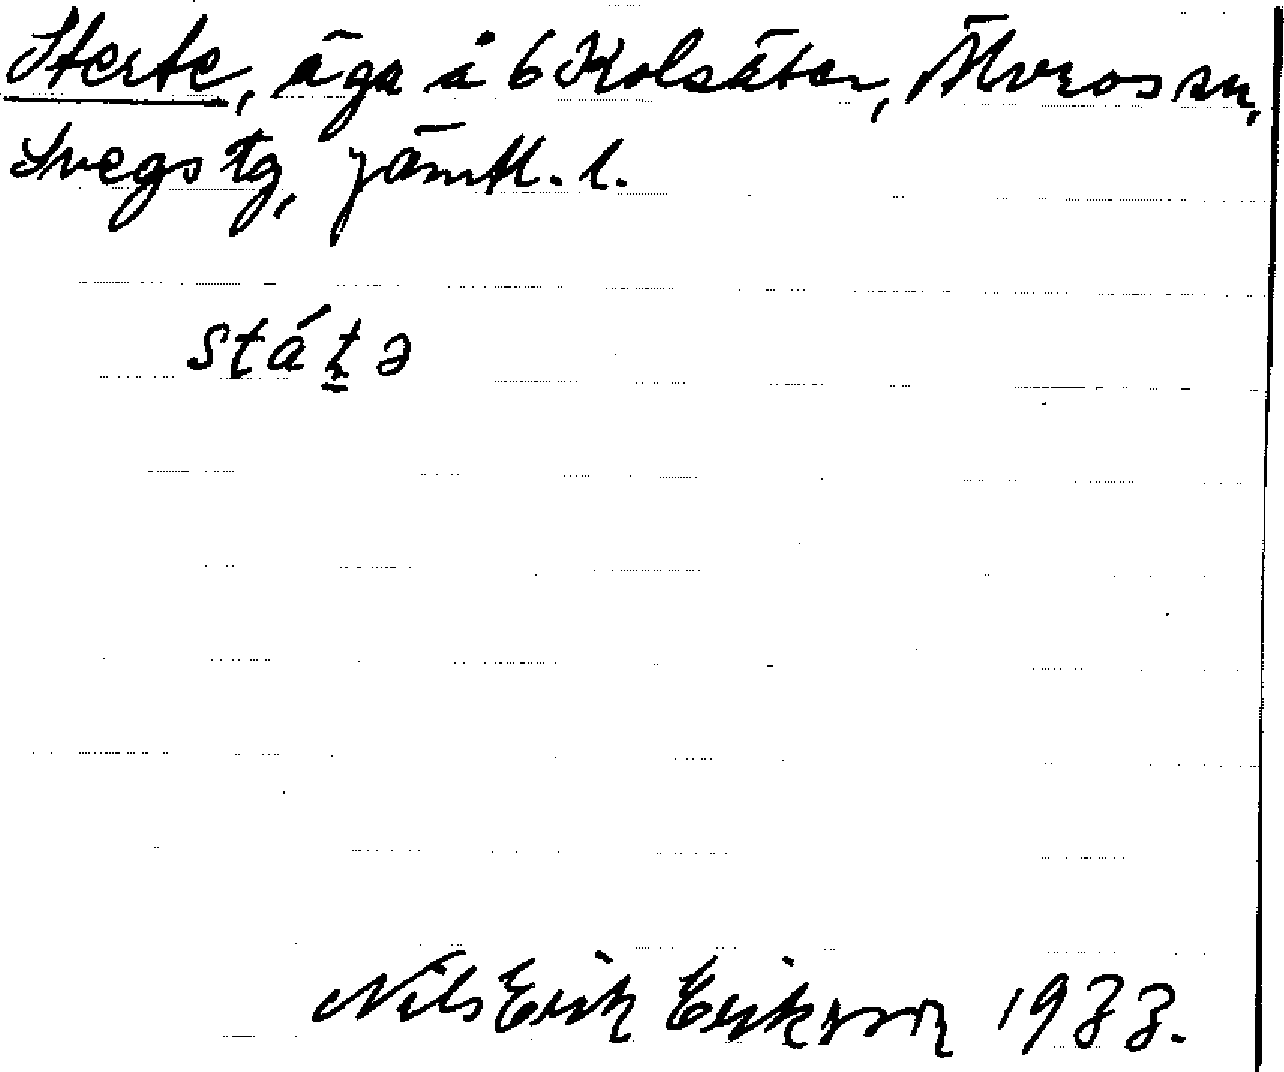 Sterte, äga å 6 Kolsäter, Älvros sn,
Svegs tg, Jämtl. l.
stáṯə
Nils Erik Erikson 1933.